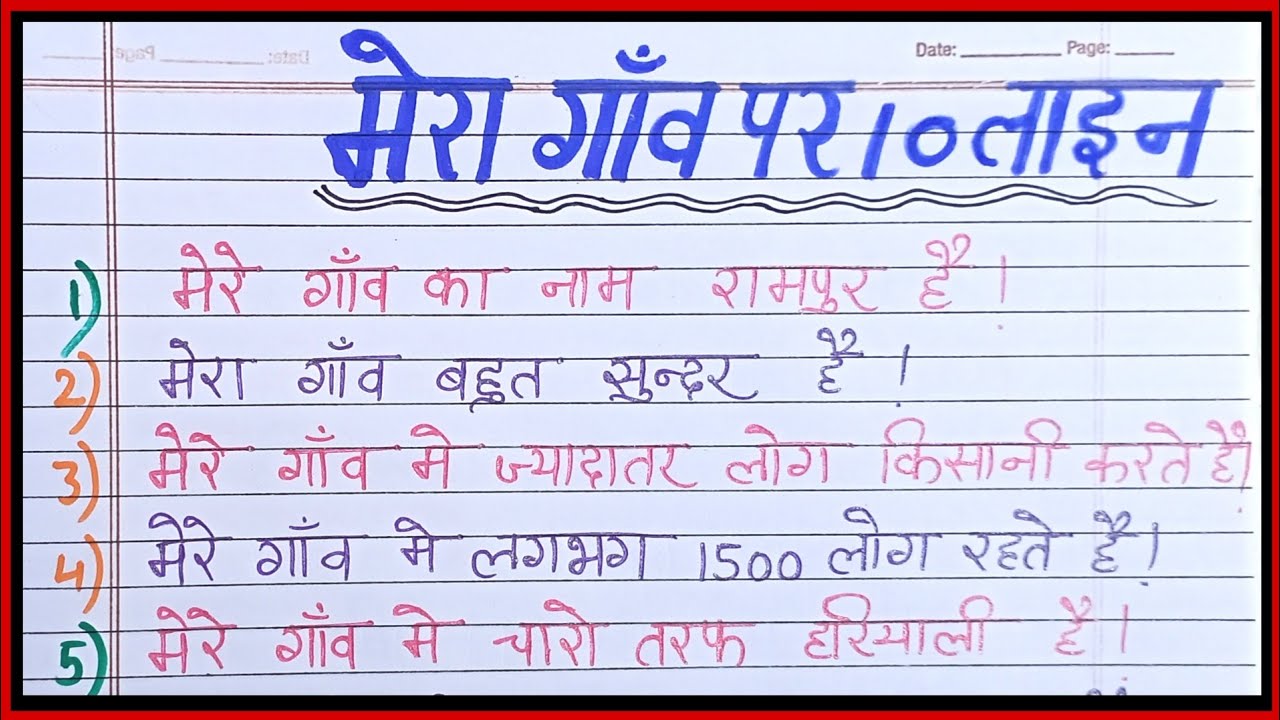 Date: ________ Page: ______
मेरा गाँव पर 10 लाइन
1) मेरे गाँव का नाम रामपुर है।
2) मेरा गाँव बहुत सुन्दर है।
3) मेरे गाँव मे ज्यादातर लोग किसानी करते है।
4) मेरे गाँव मे लगभग 1500 लोग रहते है।
5) मेरे गाँव मे चारो तरफ हरियाली है।